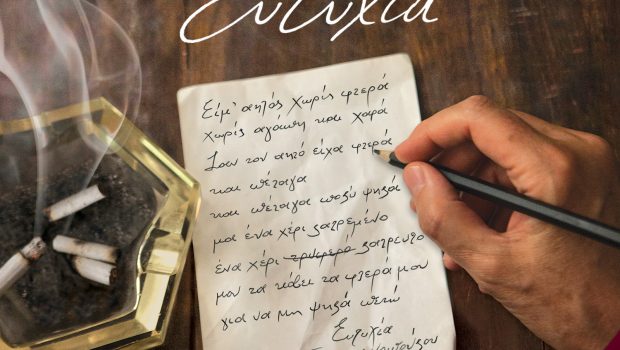 Ευτυχία
Είμ' αητός χωρίς φτερά
χωρίς αγάπη και χαρά
Σαν τον αητό είχα φτερά
και πέταγα
και πέταγα πολύ ψηλά
μα ένα χέρι λατρεμένο
ένα χέρι τρυφερό λατρευτό
μου τα κόβει τα φτερά μου
για να μη ψηλά πετώ
Ευτυχία